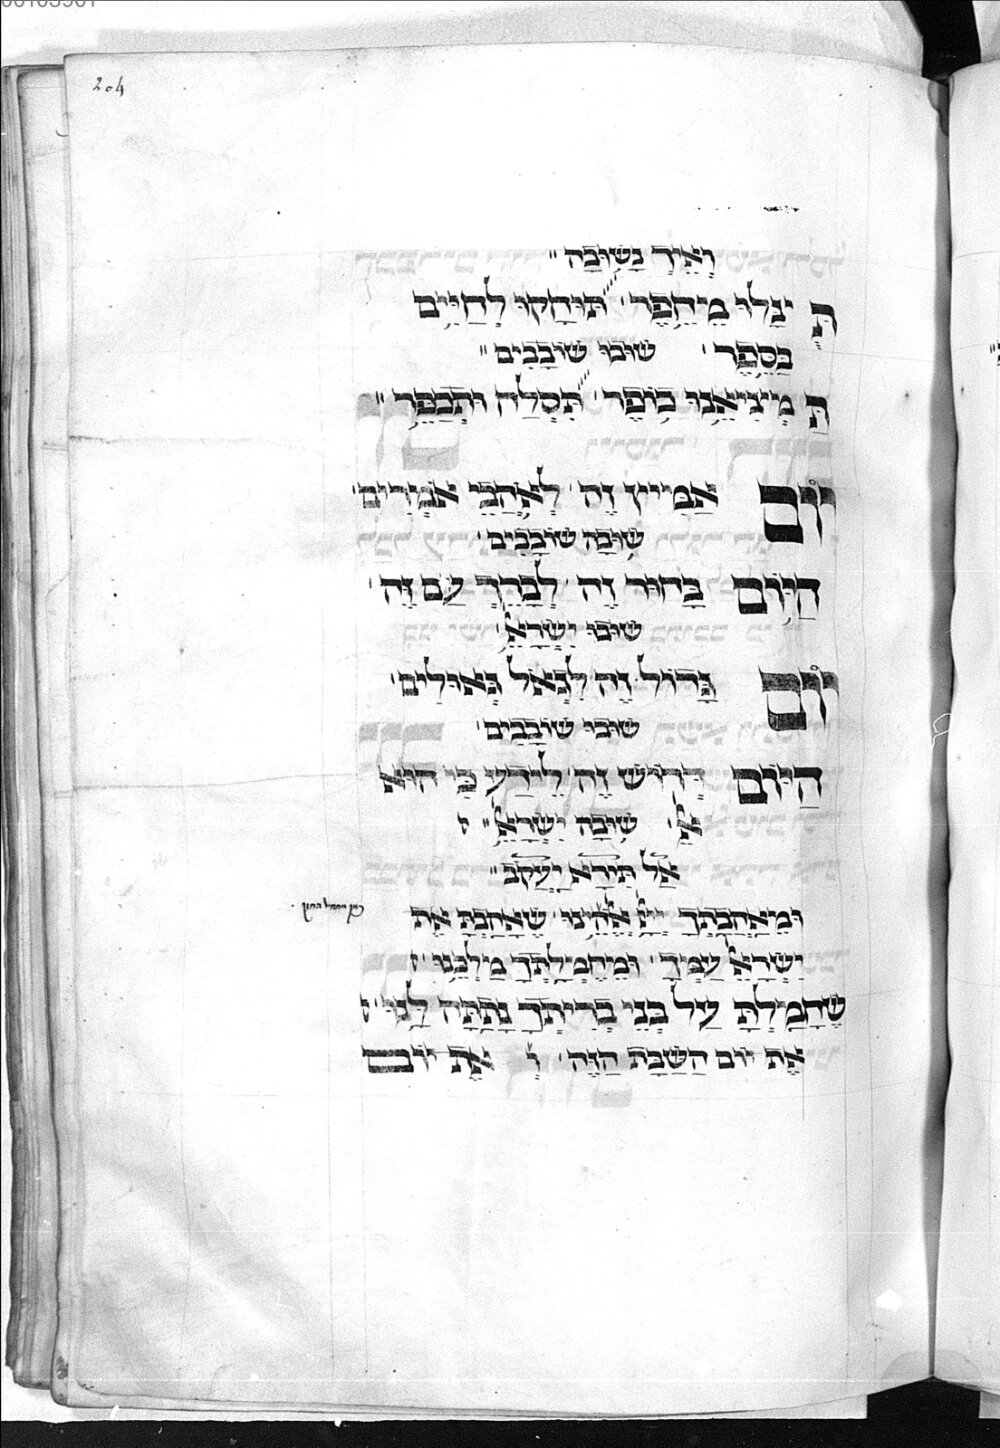 204
וְאֵיךְ נָשׁוּבָה׃
תִּ ינָּלוּ מֵיחֵפֶר׳ תּוּחָקוּ לְחַיִּים
בַּסֵּפֶר׳ שׁוּבוּ שׁוֹבָבִים׃
תַּ מְצִיאֵנוּ כוֹפֶר׳ תִּסְלַח וּתְכַפֵּר׃
יוֹם אַמִּיץ זֶה׳ לְאֻהֲבַי אֹמְרִים׳
שׁוּבוּ שׁוֹבָבִים׳
הַיּוֹם בָּחוּר זֶה׳ לְבָרֵךְ עַם זֶה׳
שׁוּבוּ יִשְׂרָאֵל׳
יוֹם גָּדוֹל זֶה לִגְאֹל גְּאוּלִים׳
שׁוּבוּ שׁוֹבָבִים׳
הַיּוֹם דָּרוּשׁ זֶה׳ לֵידַע כִּי הוּא
אֵל׳ שׁוּבָה יִשְׂרָאֵל׃
אַל תִּירָא יַעֲקֹב׃
וּמֵאַהֲבָתְךָ יְיָ אֱלֹהֵינוּ׳ שֶׁאָהַבְתָּ אֶת
יִשְׂרָאֵל עַמֶּךָ׳ וּמֵחֶמְלָתְךָ מַלְכֵּנוּ׳
שֶׁחָמַלְתָּ עַל בְּנֵי בְרִיתֶךָ נָתַתָּה לָּנוּ׳
אֶת יוֹם הַשַּׁבָּת הַזֶּה׳ וְ אֶת יוֹם